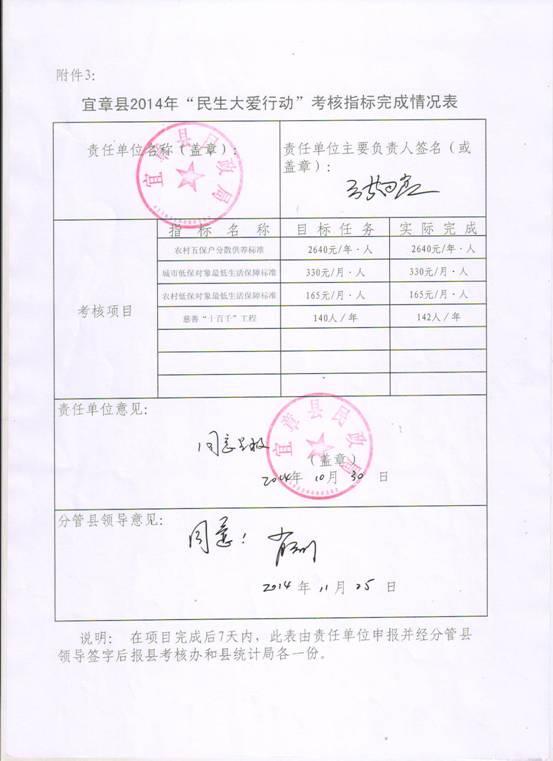 附件3：
宜章县2014年“民生大爱行动”考核指标完成情况表
责任单位名称（盖章）：
宜章县民政局
责任单位主要负责人签名（或
盖章）：
考核项目
指标名称 目标任务 实际完成
农村五保户分散供养标准 2640元/年·人 2640元/年·人
城市低保对象最低生活保障标准 330元/月·人 330元/月·人
农村低保对象最低生活保障标准 165元/月·人 165元/月·人
慈善“十百千”工程 140人/年 142人/年
责任单位意见：
同意呈报
宜章县民政局
（盖章）
2014年 10月 30日
分管县领导意见：
同意！
2014年 11月 25日
说明： 在项目完成后7天内，此表由责任单位申报并经分管县
领导签字后报县考核办和县统计局各一份。